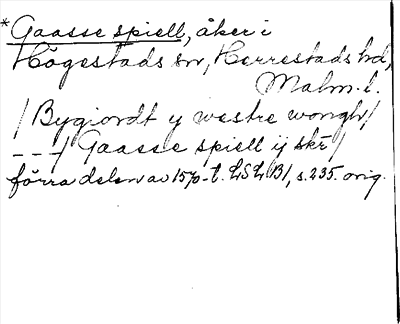 *Gaasse spiell, åker i
Högestads sn, Herrestads hd,
Malm. l.
/Bygiordt y westre wongh/
---/Gaasse spiell ij skr/
förra delen av 1570-t. LSLB1, s. 235. orig.